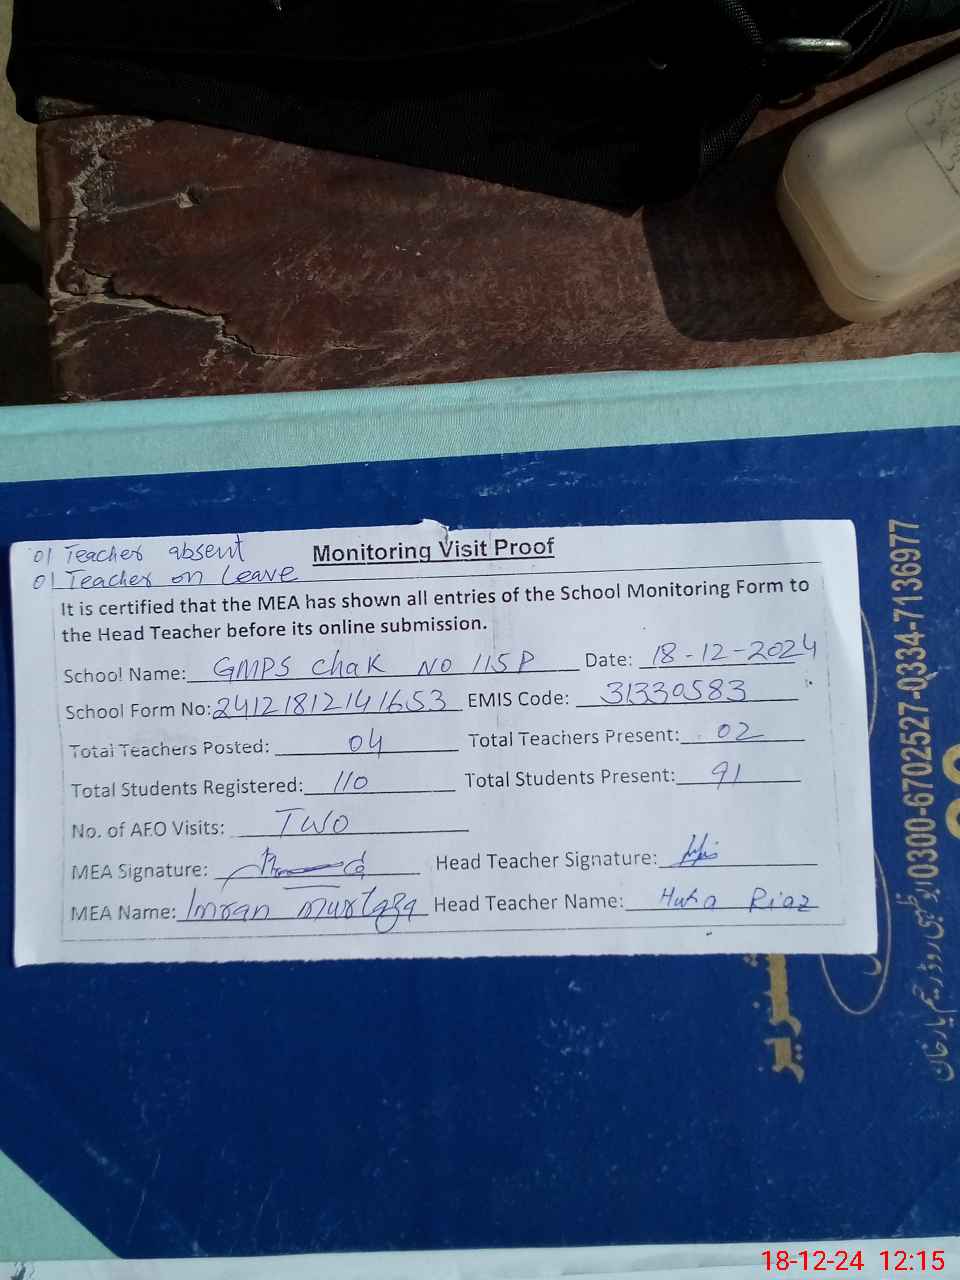 01 Teacher absent
01 Teacher on Leave
Monitoring Visit Proof
It is certified that the MEA has shown all entries of the School Monitoring Form to
the Head Teacher before its online submission.
School Name: GMPS Chak NO 115P Date: 18-12-2024
School Form No: 2412181214 1653 EMIS Code: 31330583
Total Teachers Posted: 04 Total Teachers Present: 02
Total Students Registered: 110 Total Students Present: 91
No. of AEO Visits: TWO
MEA Signature: Head Teacher Signature:
MEA Name: Imran Murtaza Head Teacher Name: Riaz
0300-6702527-0334-7136977
18-12-24 12:15